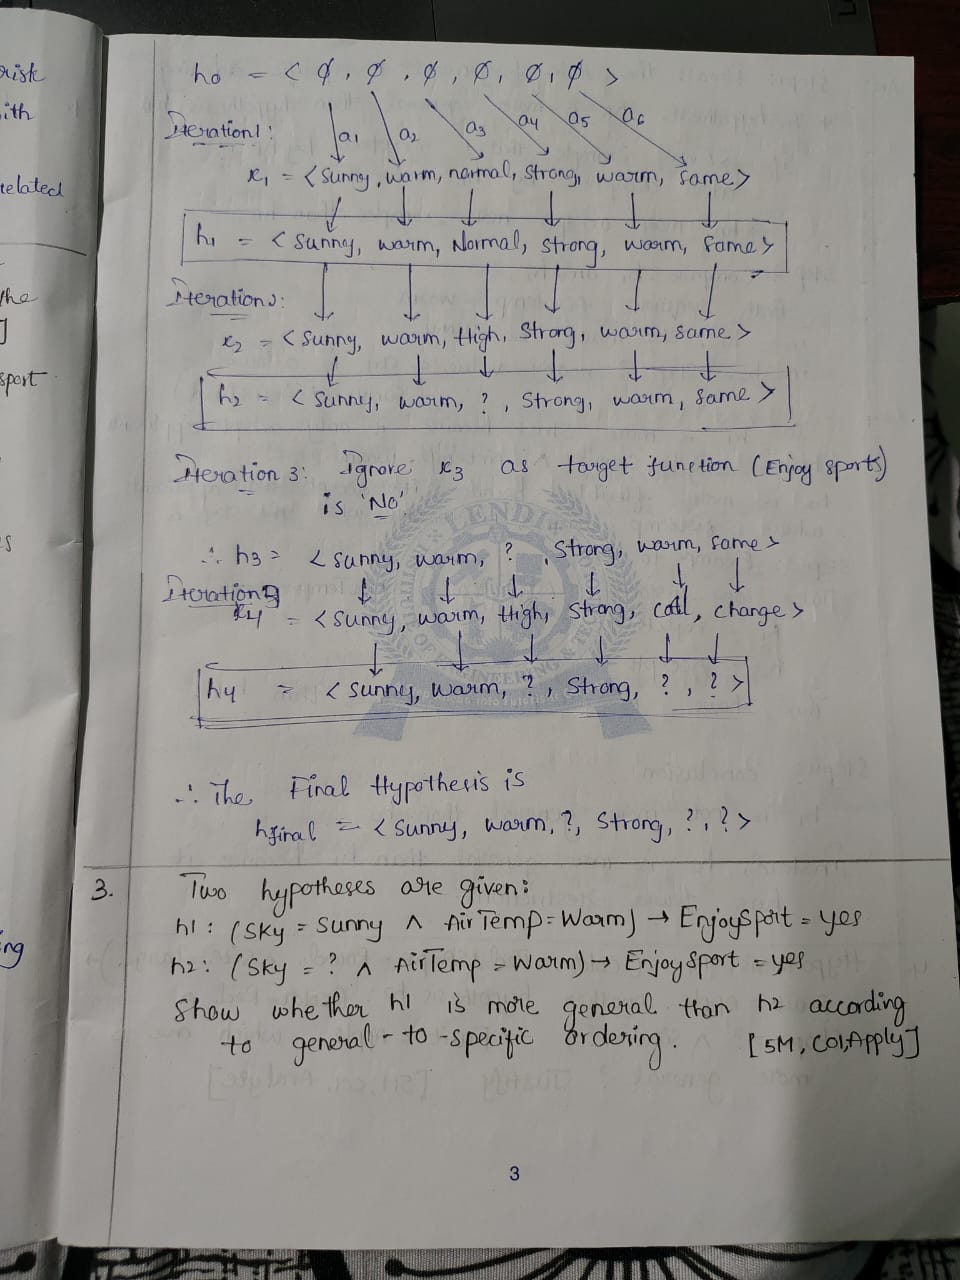 risk
ith
related
the
]
sport
s
ng
h0 = < ∅, ∅, ∅, ∅, ∅, ∅ >
Iteration1:
a1 a2 a3 a4 a5 a6
x1 = < Sunny, warm, normal, Strong, warm, Same>
h1 = < Sunny, warm, Normal, Strong, warm, Same>
Iteration2:
x2 = < Sunny, warm, High, Strong, warm, same >
h2 = < Sunny, warm, ?, Strong, warm, same >
Iteration 3: Ignore x3 as target function (Enjoy sports)
is 'No'
∴ h3 = < Sunny, warm, ?, Strong, warm, same >
Iteration
x4 = < Sunny, warm, High, Strong, cool, change >
h4 = < Sunny, warm, ?, Strong, ?, ? >
∴ The Final Hypothesis is
hfinal = < Sunny, warm, ?, Strong, ?, ? >
LENDI
3. Two hypotheses are given:
h1: (Sky = Sunny ∧ AirTemp = Warm) → EnjoySport = yes
h2: (Sky = ? ∧ AirTemp = Warm) → EnjoySport = yes
Show whether h1 is more general than h2 according
to general-to-specific ordering. [5M, CO1, Apply]
3